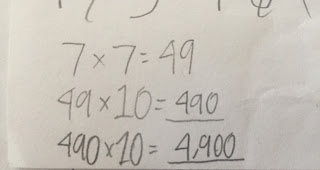 7×7=49
49×10=490
490×10=4,900